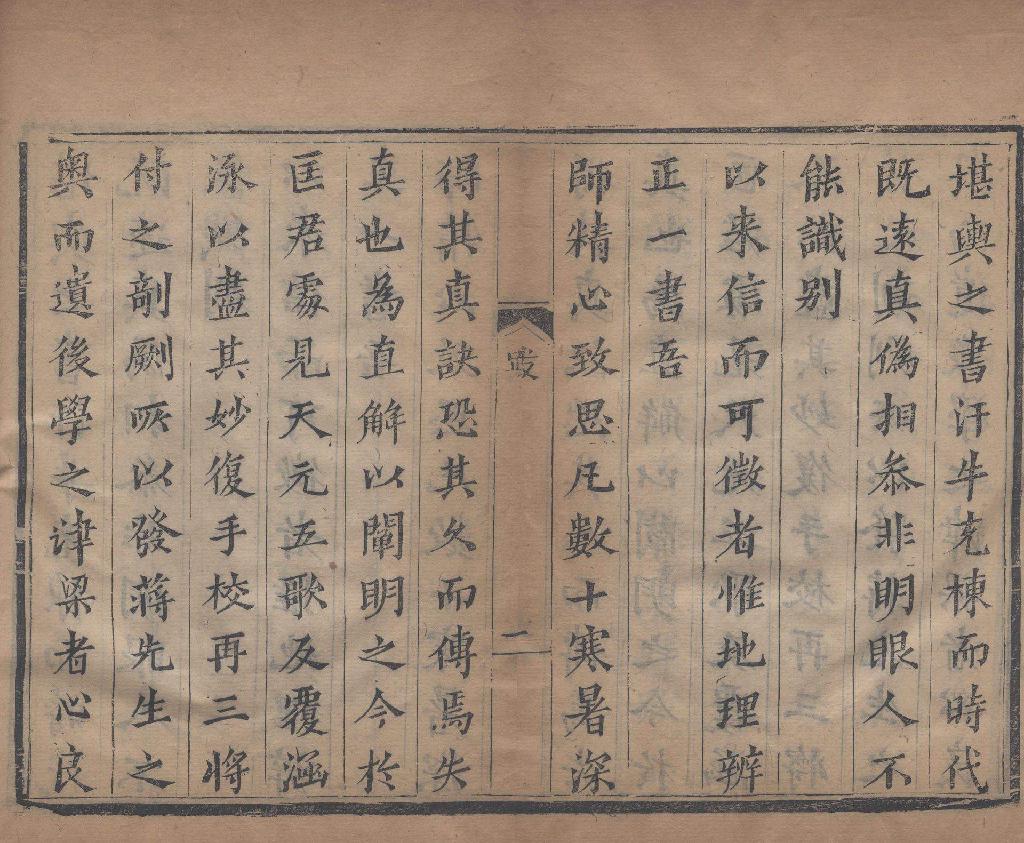 堪輿之書汗牛充棟而時代
既遠真偽相叅非明眼人不
能識别
以来信而可徵者惟地理辨
正一書吾
師精心致思凡數十寒暑深
跋
二
得其真訣恐其久而傳焉失
真也為直解以闡明之今於
匡君處見天元五歌反覆涵
泳以盡其妙復手校再三將
付之剞劂所以發蔣先生之
奥而遺後學之津梁者心良